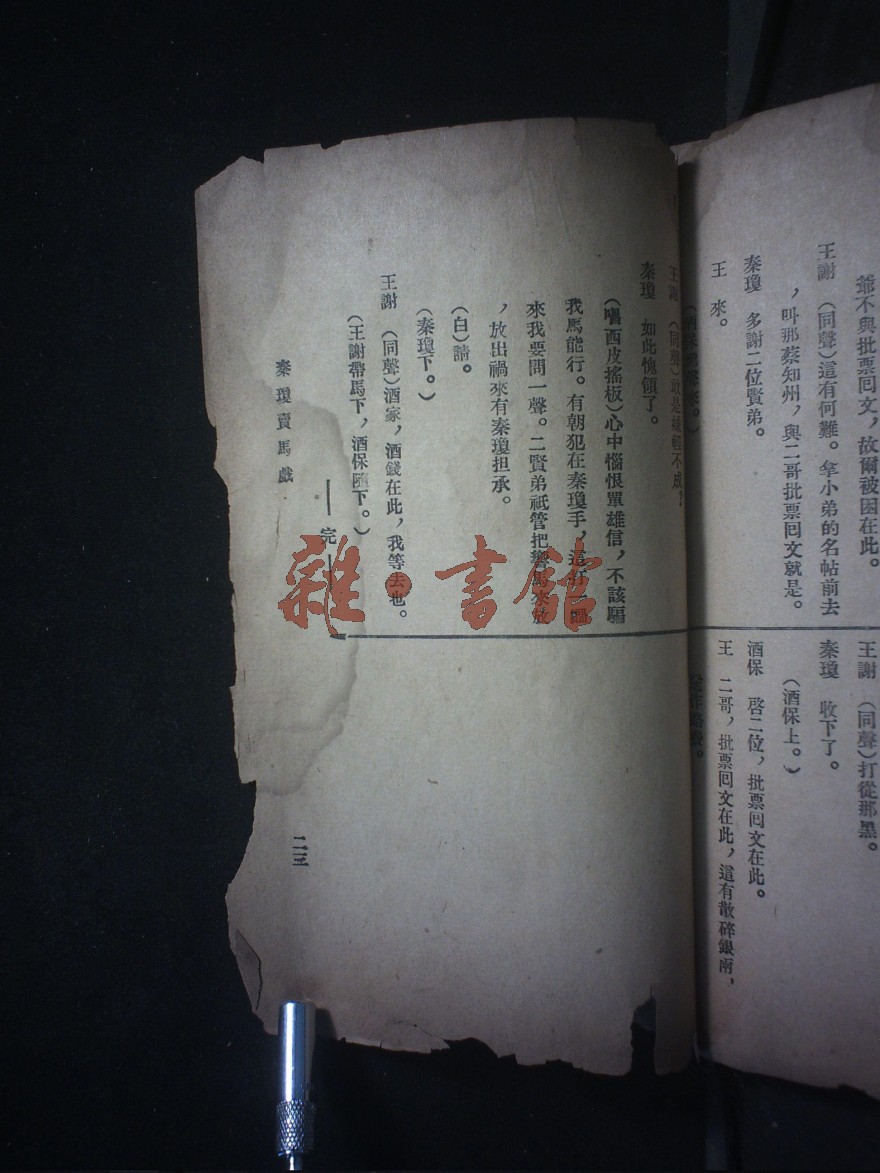 爺不與批票囘文，故爾被困在此。
王謝　（同聲）這有何難。拿小弟的名帖前去
，叫那蔡知州，與二哥批票囘文就是。
秦瓊　多謝二位賢弟。
王　來。
王謝　（同聲）打從那黑。
秦瓊　收下了。
（酒保上。）
酒保　啓二位，批票囘文在此。
王　二哥，批票囘文在此，這有散碎銀兩，
王謝　（同聲）敢是嫌輕不成？
秦瓊　如此愧領了。
（唱西皮搖板）心中惱恨單雄信，不該騙
我馬能行。有朝犯在秦瓊手，這
來我要問一聲。二賢弟祇管把響馬來放
，放出禍來有秦瓊担承。
（白）請。
（秦瓊下。）
王謝　（同聲）酒家，酒錢在此，我等去也。
（王謝帶馬下，酒保隨下。）
—完—
秦瓊賣馬戲
二三
雜·書館